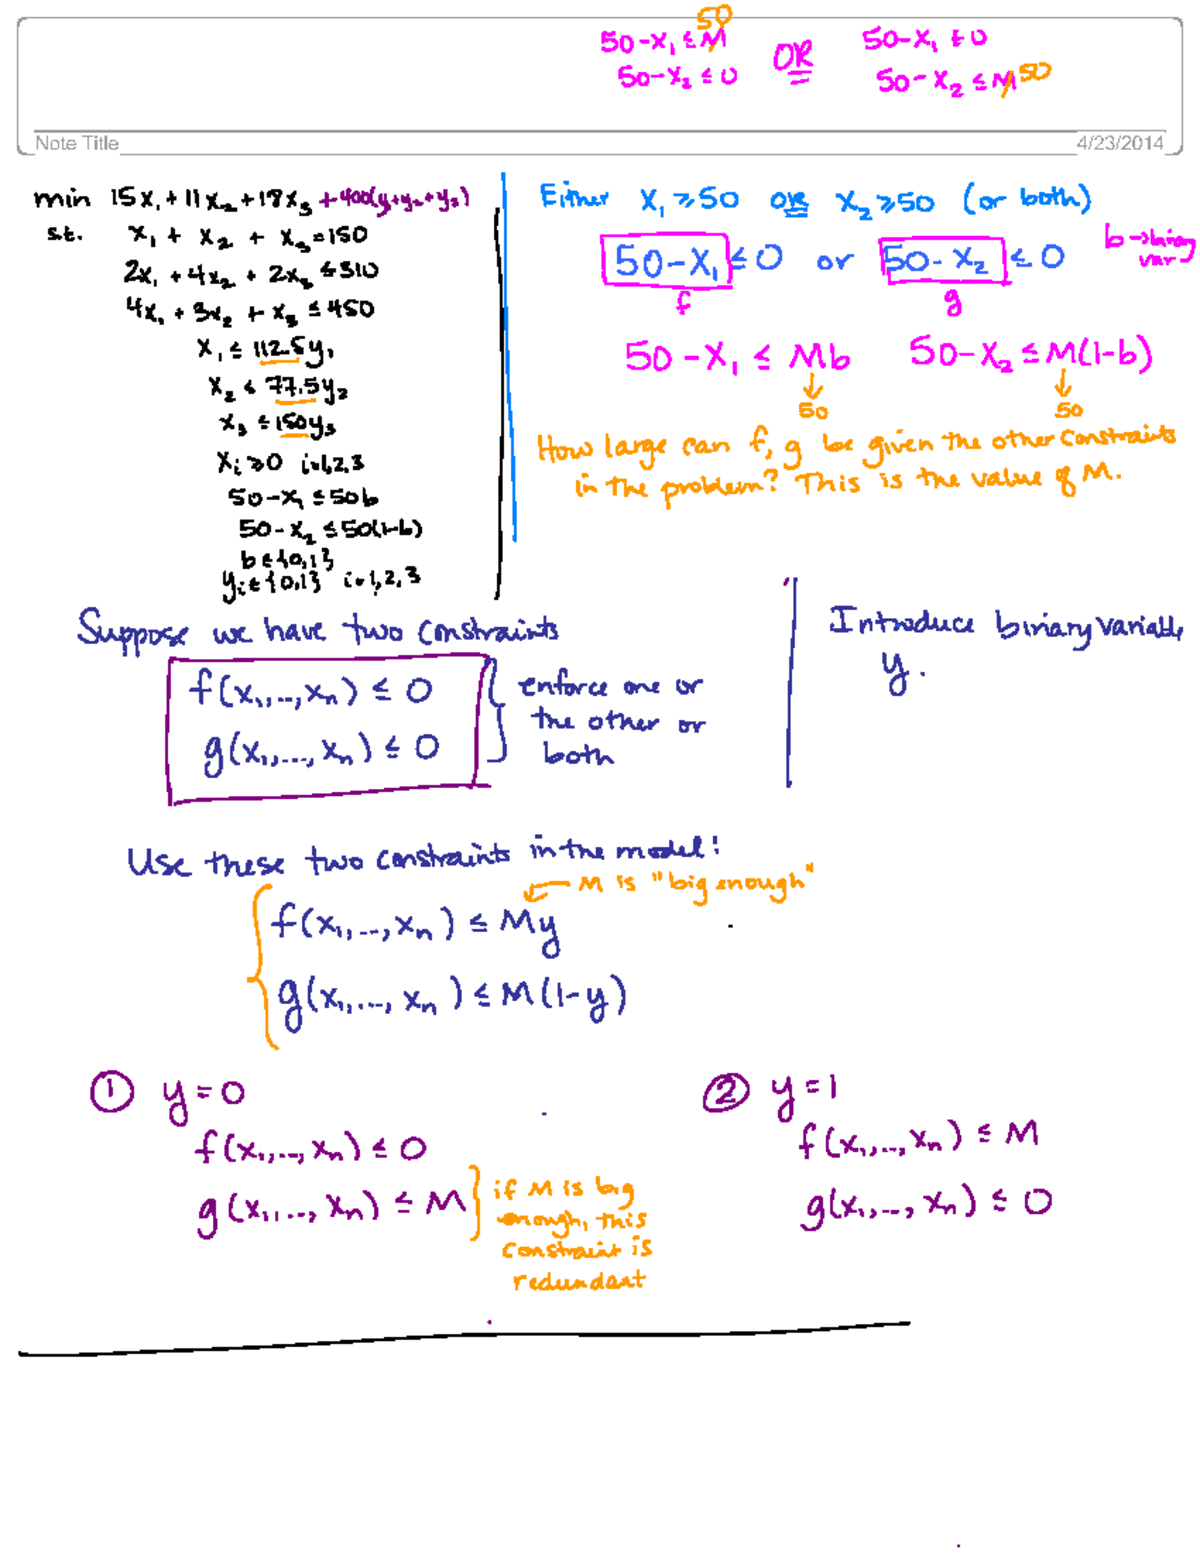 50
50-x₁ ≤ M OR 50-x₁ ≤ 0
50-x₂ ≤ 0 50-x₂ ≤ M 50
Note Title 4/23/2014
min 15x₁ + 11x₂ + 18x₃ + 400(y₁+y₂+y₃)
s.t. x₁ + x₂ + x₃ = 150
2x₁ + 4x₂ + 2x₃ ≤ 310
4x₁ + 3x₂ + x₃ ≤ 450
x₁ ≤ 112.5y₁
x₂ ≤ 77.5y₂
x₃ ≤ 150y₃
xᵢ ≥ 0 i=1,2,3
50-x₁ ≤ 50b
50-x₂ ≤ 50(1-b)
b ∈ {0,1}
yᵢ ∈ {0,1} i=1,2,3
Either x₁ ≥ 50 OR x₂ ≥ 50 (or both)
50-x₁ ≤ 0 or 50-x₂ ≤ 0
b → binary
var
f g
50-x₁ ≤ Mb 50-x₂ ≤ M(1-b)
↓ ↓
50 50
How large can f, g be given the other constraints
in the problem? This is the value of M.
Suppose we have two constraints
f(x₁,...,xₙ) ≤ 0
g(x₁,...,xₙ) ≤ 0
enforce one or
the other or
both
Introduce binary variable
y.
Use these two constraints in the model:
← M is "big enough"
f(x₁,...,xₙ) ≤ My
g(x₁,...,xₙ) ≤ M(1-y)
① y=0
f(x₁,...,xₙ) ≤ 0
g(x₁,...,xₙ) ≤ M
if M is big
enough, this
constraint is
redundant
② y=1
f(x₁,...,xₙ) ≤ M
g(x₁,...,xₙ) ≤ 0